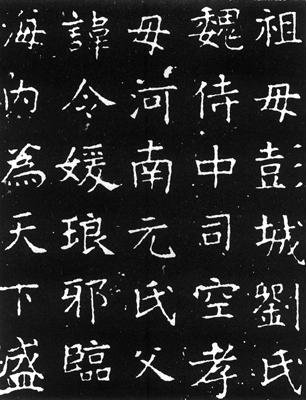 祖母彭城劉氏
魏侍中司空孝
母河南元氏父
諱令媛琅邪臨
海内為天下盛